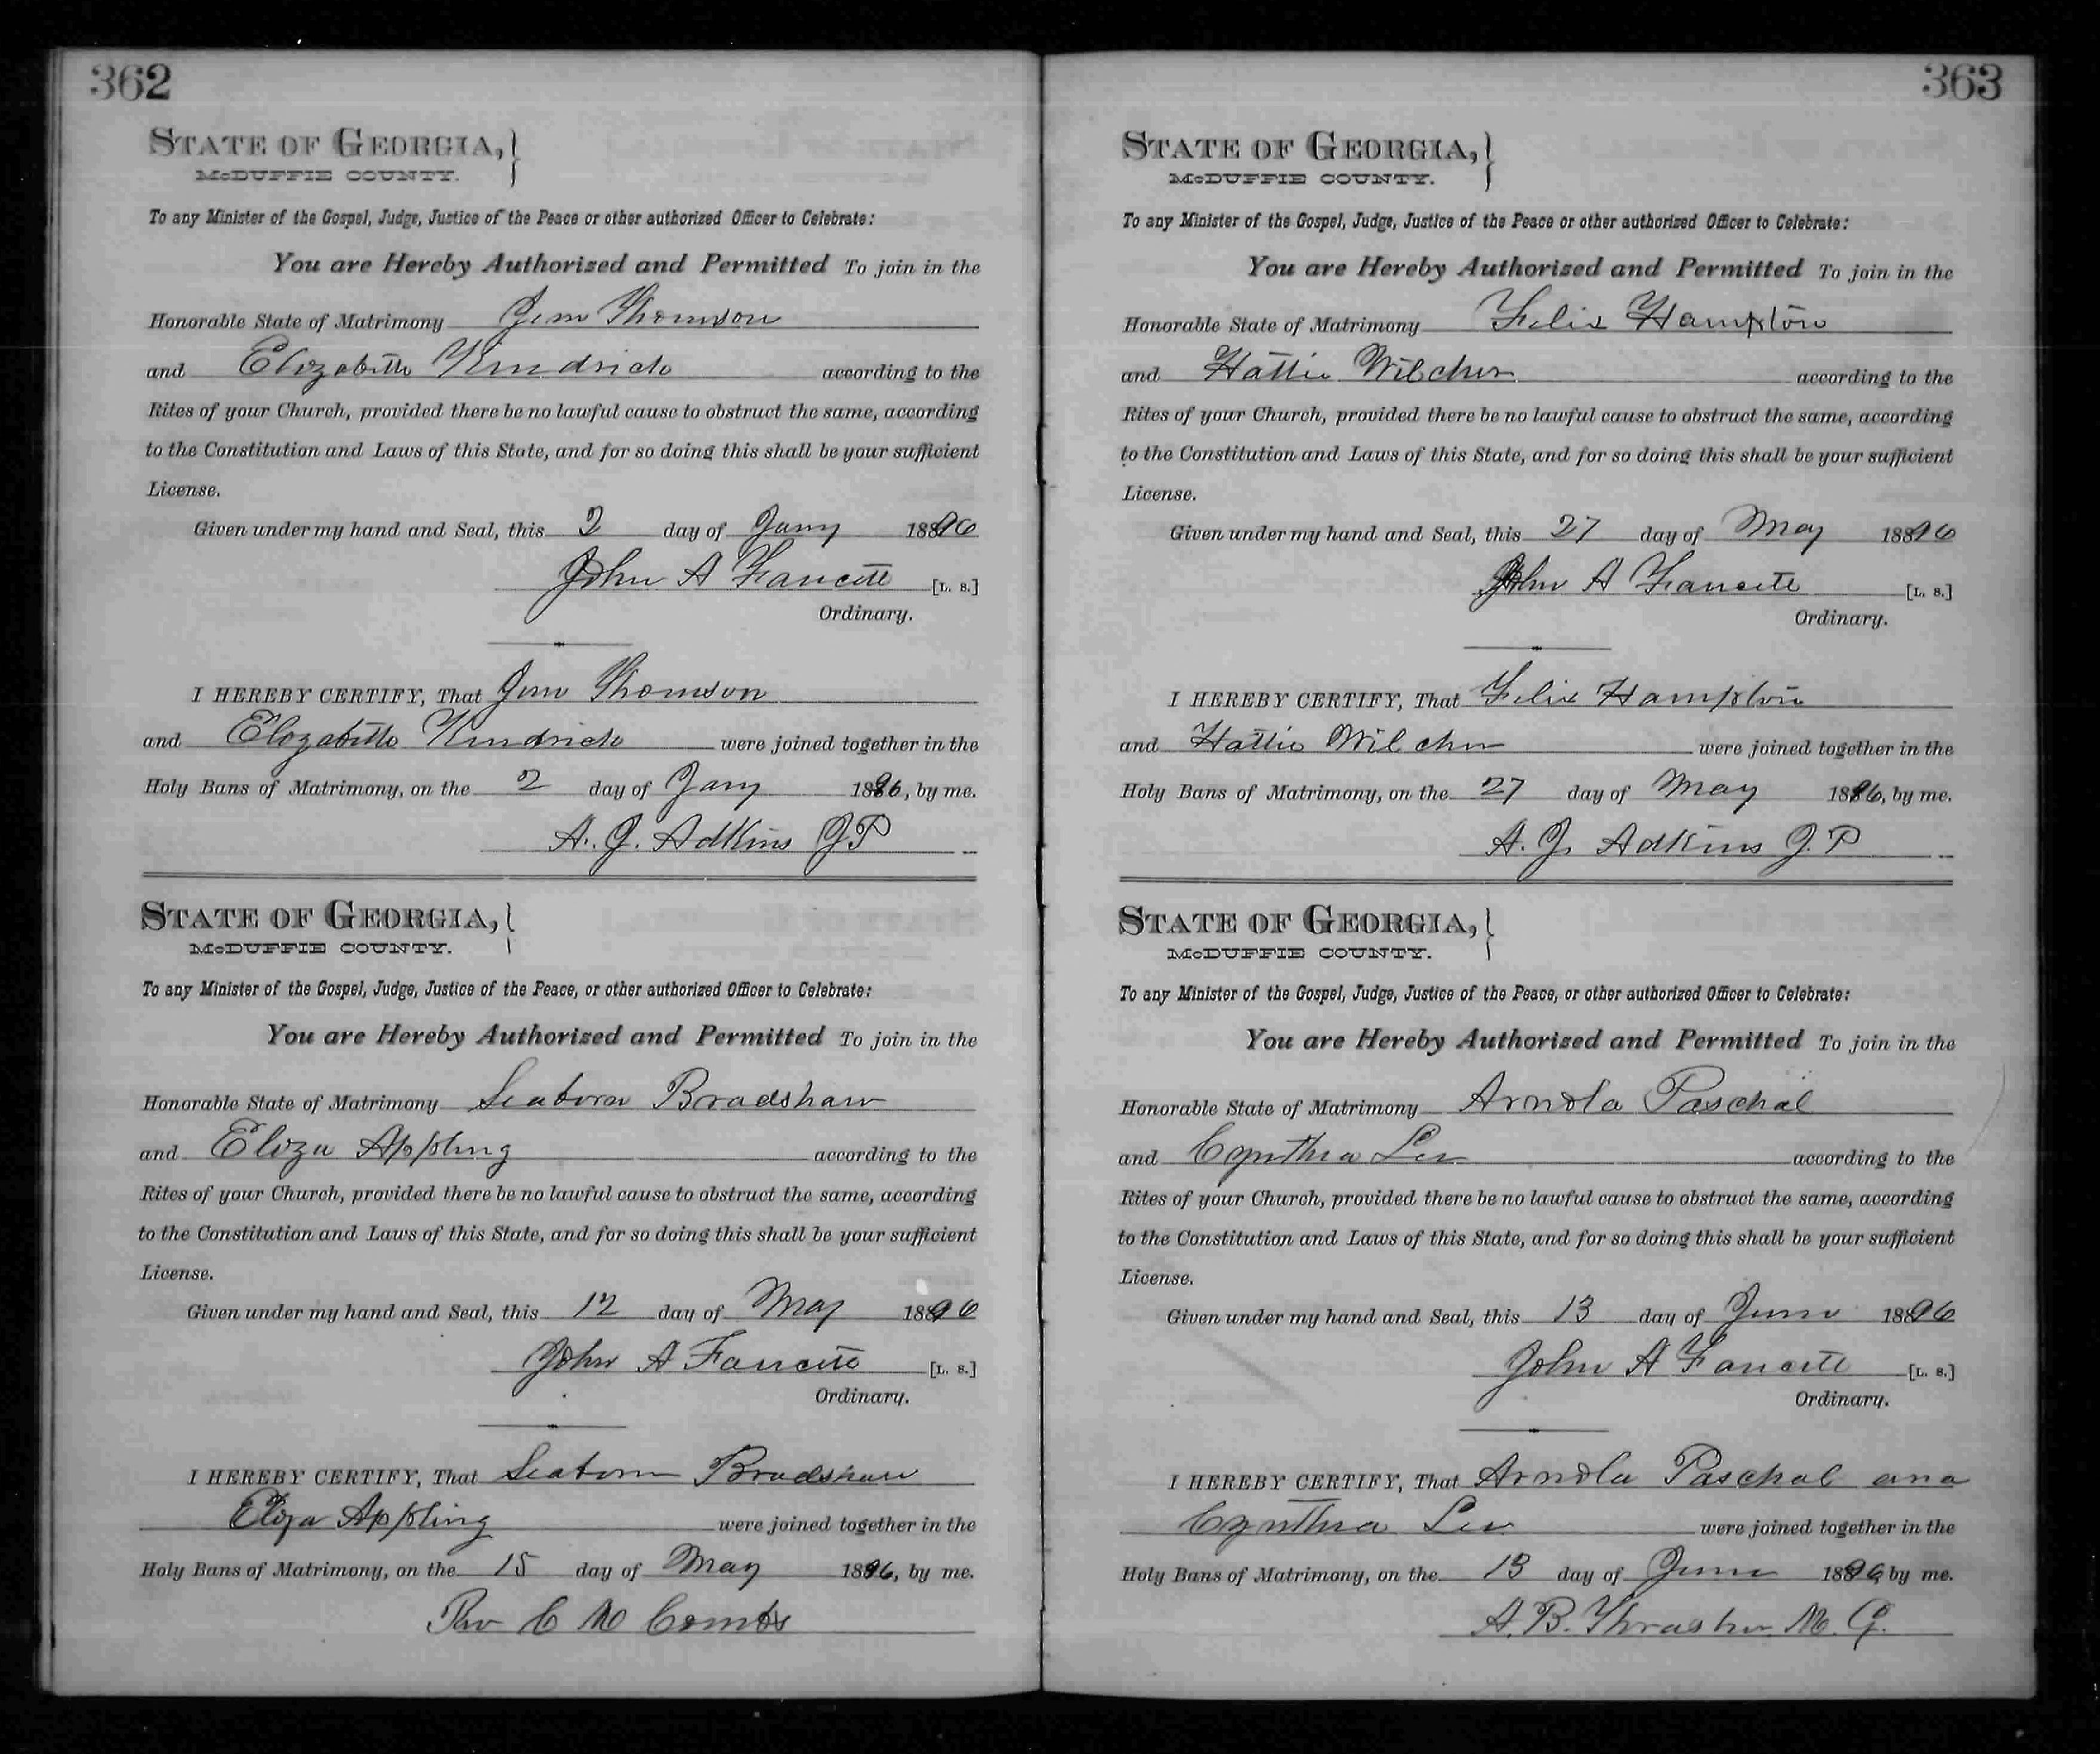 362
STATE OF GEORGIA,
McDUFFIE COUNTY.
To any Minister of the Gospel, Judge, Justice of the Peace or other authorized Officer to Celebrate:
You are Hereby Authorized and Permitted To join in the
Honorable State of Matrimony Jim Thomson
and Elizabeth Kendrick according to the
Rites of your Church, provided there be no lawful cause to obstruct the same, according
to the Constitution and Laws of this State, and for so doing this shall be your sufficient
License.
Given under my hand and Seal, this 2 day of Jany 1896
John A Faucette [L. S.]
Ordinary.
I HEREBY CERTIFY, That Jim Thomson
and Elizabeth Kendrick were joined together in the
Holy Bans of Matrimony, on the 2 day of Jany 1896, by me.
A. J. Adkins J P
STATE OF GEORGIA,
McDUFFIE COUNTY.
To any Minister of the Gospel, Judge, Justice of the Peace, or other authorized Officer to Celebrate:
You are Hereby Authorized and Permitted To join in the
Honorable State of Matrimony Seaborn Bradshaw
and Eliza Appling according to the
Rites of your Church, provided there be no lawful cause to obstruct the same, according
to the Constitution and Laws of this State, and for so doing this shall be your sufficient
License.
Given under my hand and Seal, this 12 day of May 1896
John A Faucette [L. S.]
Ordinary.
I HEREBY CERTIFY, That Seaborn Bradshaw
Eliza Appling were joined together in the
Holy Bans of Matrimony, on the 15 day of May 1896, by me.
Rev C M Combs
363
STATE OF GEORGIA,
McDUFFIE COUNTY.
To any Minister of the Gospel, Judge, Justice of the Peace or other authorized Officer to Celebrate:
You are Hereby Authorized and Permitted To join in the
Honorable State of Matrimony Felix Hampton
and Hattie Wilcher according to the
Rites of your Church, provided there be no lawful cause to obstruct the same, according
to the Constitution and Laws of this State, and for so doing this shall be your sufficient
License.
Given under my hand and Seal, this 27 day of May 1896
John A Faucette [L. S.]
Ordinary.
I HEREBY CERTIFY, That Felix Hampton
and Hattie Wilcher were joined together in the
Holy Bans of Matrimony, on the 27 day of May 1896, by me.
A. J. Adkins J. P
STATE OF GEORGIA,
McDUFFIE COUNTY.
To any Minister of the Gospel, Judge, Justice of the Peace, or other authorized Officer to Celebrate:
You are Hereby Authorized and Permitted To join in the
Honorable State of Matrimony Arnold Paschal
and Cynthia Lee according to the
Rites of your Church, provided there be no lawful cause to obstruct the same, according
to the Constitution and Laws of this State, and for so doing this shall be your sufficient
License.
Given under my hand and Seal, this 13 day of June 1896
John A Faucette [L. S.]
Ordinary.
I HEREBY CERTIFY, That Arnold Paschal and
Cynthia Lee were joined together in the
Holy Bans of Matrimony, on the 13 day of June 1896, by me.
A. B. Thrasher M. G.